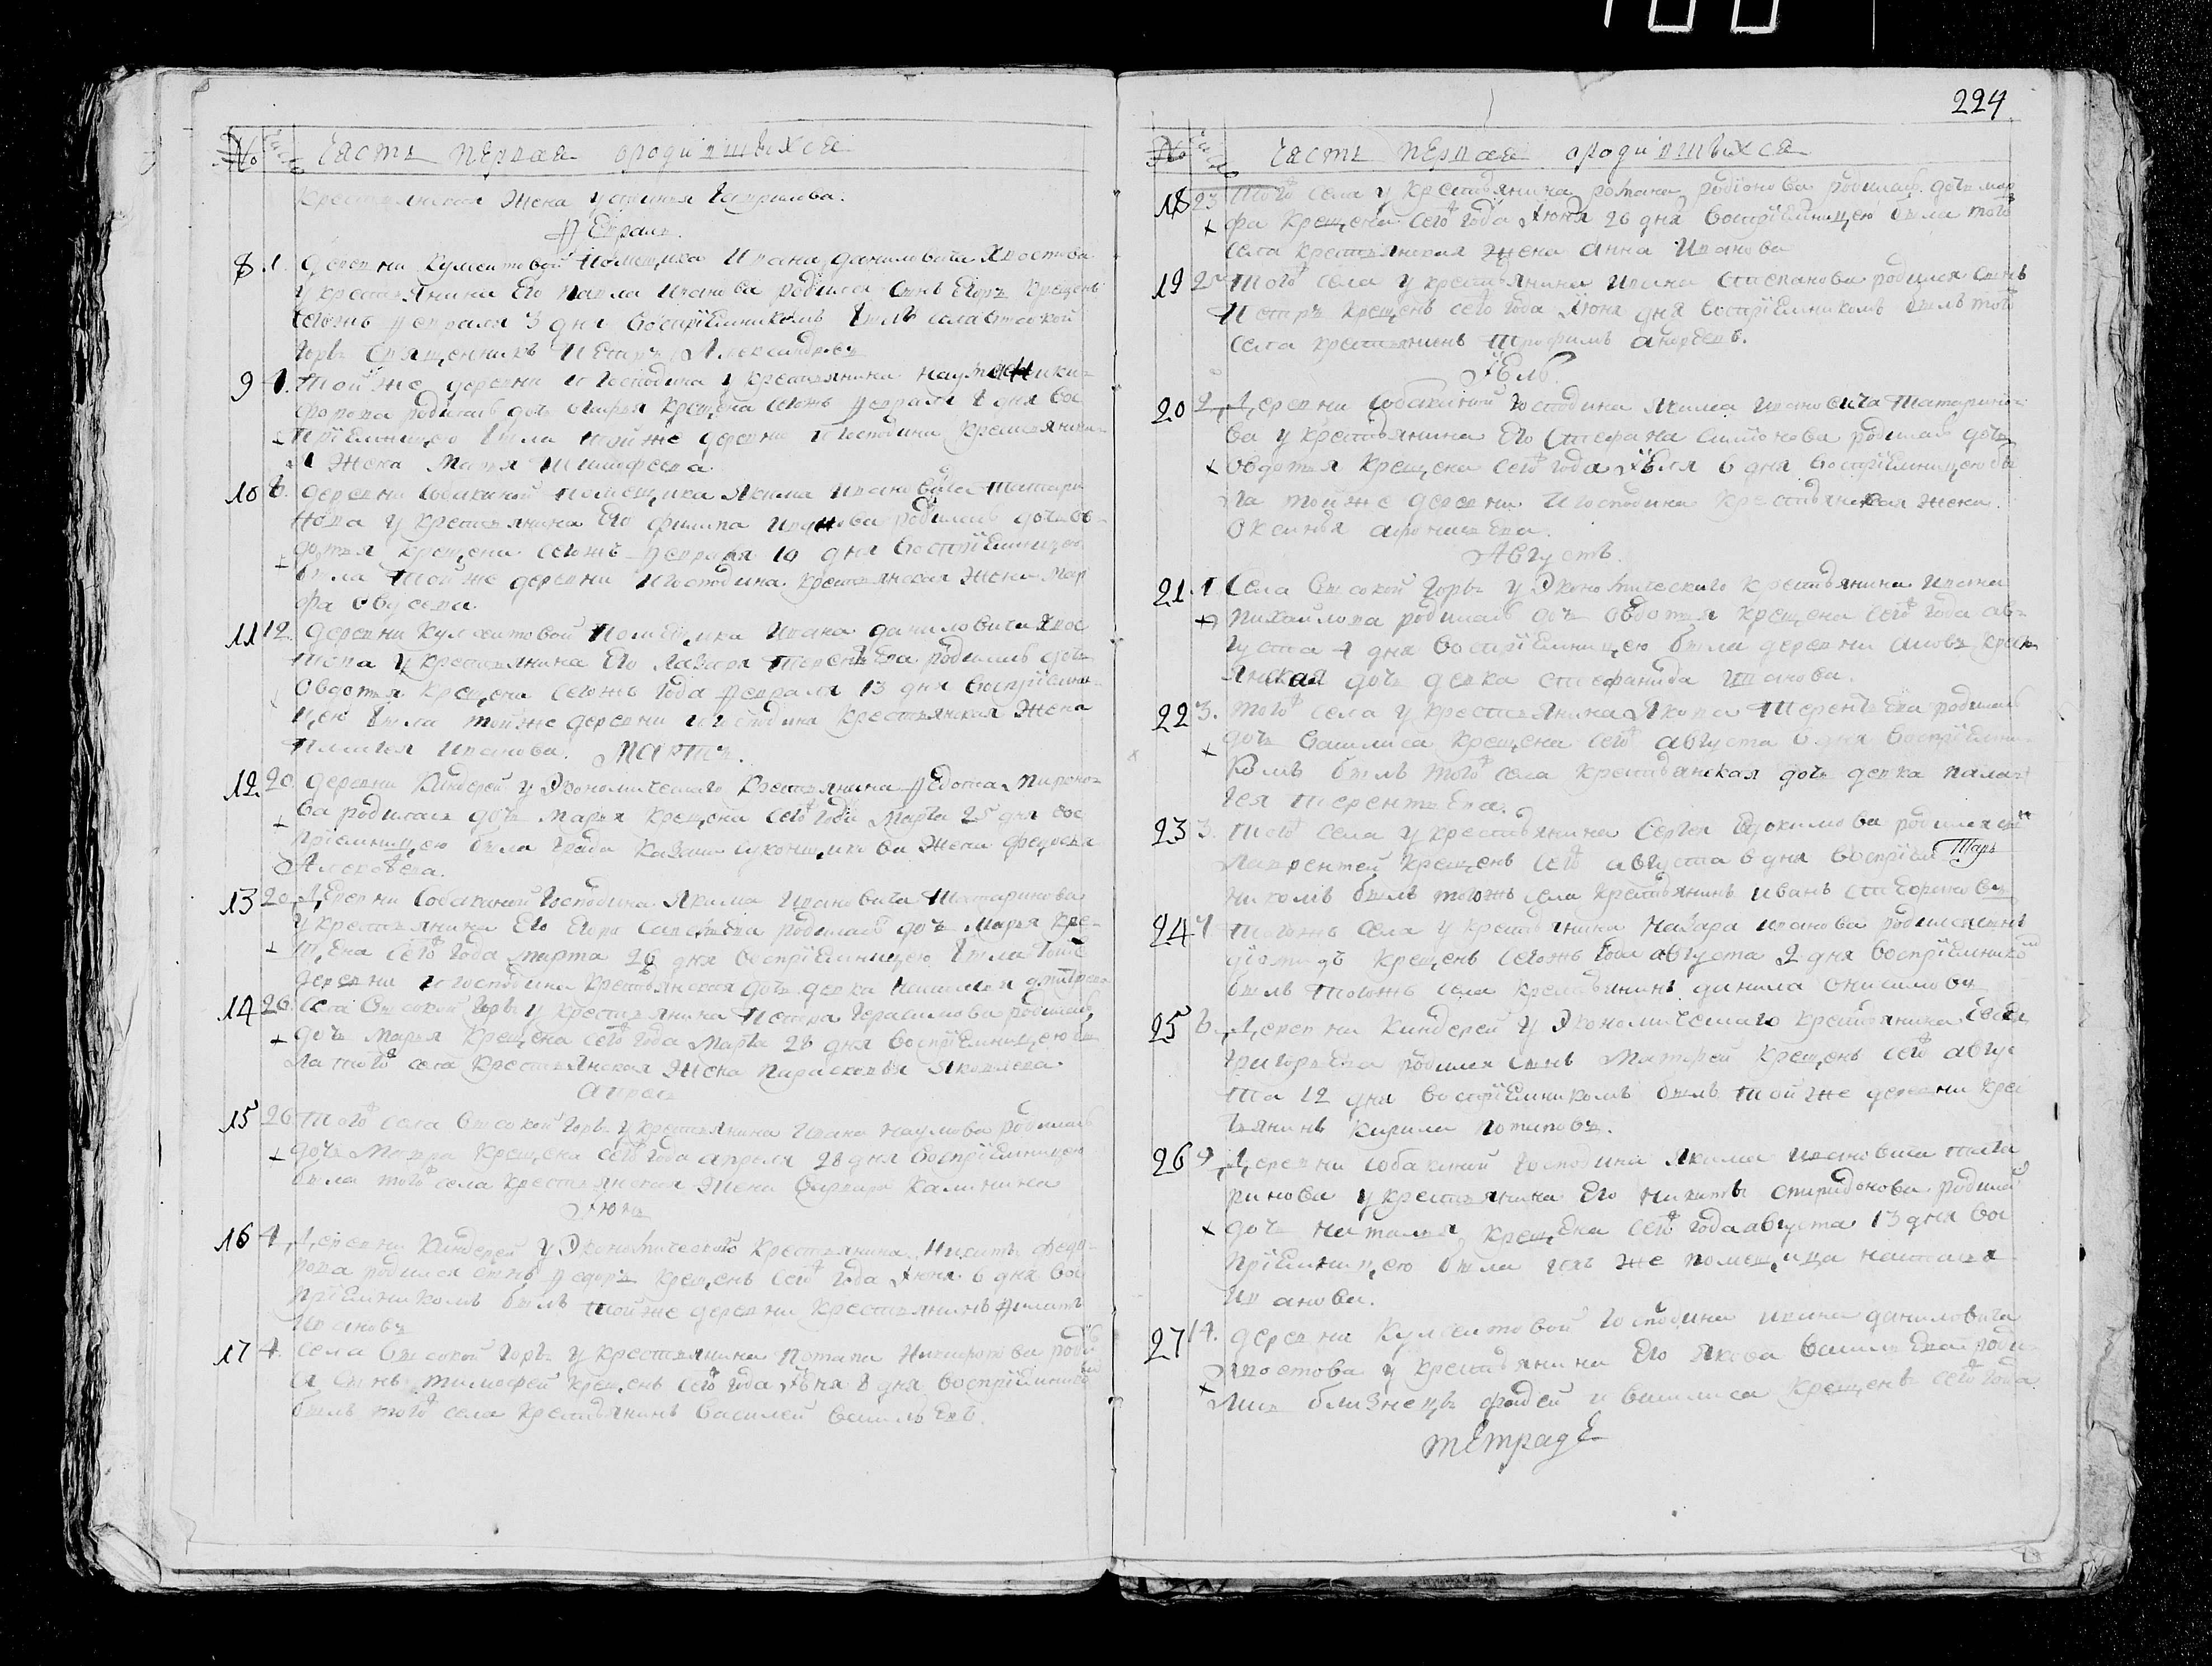 224
№ Часть первая о родившихся
крестьянская жена Устинья Гаврилова.
Февраль.
8 1. деревни Кулсеитовой помещика Ивана Даниловича Хвостова
у крестьянина его Павла Иванова родился сынъ Егоръ крещенъ
сегожъ февраля 3 дня воспрїемникомъ былъ села Высокой
Горы священникъ Петръ Александровъ
9 4. Той же деревни и господина у крестьянина Наума Ники-
форова родилась дочь крещена сегожъ февраля 8 дня вос
прїемницею была той же деревни и господина крестьянска
я жена Марья Тимофеева.
10 6. деревни Собакиной помещика Якима Ивановича Татари
нова у крестьянина его Филипа Иванова родилась дочь Ов
дотья крещена сегожъ февраля 10 дня воспрїемницею
была той же деревни и господина крестьянская жена Мар
фа
11 12. деревни Кулсеитовой помещика Ивана Даниловича Хвос
това у крестьянина его Лазаря Терентьева родилась дочь
Овдотья крещена сегожъ года февраля 13 дня воспрїемни-
цею была той же деревни и господина крестьянская жена
Пелагея Иванова. Мартъ.
12 20 деревни Киндерей у экономическаго крестьянина Федота Мироно-
ва родилась дочь Марья крещена сего года марта 25 дня вос
прїемницею была града Казани суконщикова жена Федосья
Алексѣева.
13 20 Деревни Собакиной господина Якима Ивановича Татаринова
у крестьянина его Егора Савельева родилась дочь Марья кре-
щена сего года марта 26 дня воспрїемницею была тойже
деревни и господина крестьянская дочь девка Дмитрева
14 26. Села Высокой Горы у крестьянина Петра Герасимова родилась
дочь Марья крещена сего года марта 28 дня воспрїемницею бы
ла того села крестьянская жена Парасковья Яковлева.
Апрель
15 26 Того села Высокой Горы у крестьянина Ивана Наумова родилась
дочь Мавра крещена сего года апреля 28 дня воспрїемницею
была того села крестьянская жена Варвара Калинина
Июнь
16 4 Деревни Киндерей у экономического крестьянина Никиты Федо-
рова родился сынъ Федоръ крещенъ сего года июня 6 дня вос
прїемникомъ былъ той же деревни крестьянинъ Филатъ
Ивановъ
17 4. Села Высокой Горы у крестьянина Потапа Никифорова роди
ся сынъ Тимофей крещенъ сего года июня 8 дня воспрїемнико
былъ того села крестьянинъ Василей Васильевъ.
№ Часть первая о родившихся
18 23 Того села у крестьянина Романа Родїонова родилась дочь Мар
фа крещена сего года июня 26 дня воспрїемницею была того
села крестьянская жена Анна Иванова
19 25 Того села у крестьянина Ивана Степанова родился сынъ
Петръ крещенъ сего года июня дня воспрїемникомъ былъ того
села крестьянинъ Трофимъ Андреевъ.
Июль
20 2 Деревни Собакиной господина Якима Ивановича Татарино
ва у крестьянина его Стефана Симонова родилась дочь
Овдотья крещена сего года июля 6 дня воспрїемницею бы
ла той же деревни и господина крестьянская жена
Оксинья
Августъ.
21. 1 Села Высокой Горы у экономического крестьянина Ивана
Михайлова родилась дочь Овдотья крещена сего года ав-
густа 4 дня воспрїемницею была деревни крест
янская дочь девка Стефанида Иванова.
22 3. Того села у крестьянина Якова Терентьева родилась
дочь Василиса крещена сего августа 6 дня воспрїемни-
комъ былъ того села крестьянская дочь девка Пала-
гея Терентьева.
23 3. Того села у крестьянина Сергея Евдокимова родился сын
Лаврентей крещенъ сего августа 6 дня воспрїем
никомъ былъ тогожъ села крестьянинъ Иванъ
24 4 Тогожъ села у крестьянина Назара Иванова родился сынъ
Дїомидъ крещенъ сегожъ года августа 2 дня воспрїемнико
былъ тогожъ села крестьянинъ Данила Онисимовъ
25 6. Деревни Киндерей у экономическаго крестьянина
Григорьева родился сынъ Матфей крещенъ сего авгус
та 12 дня воспрїемникомъ былъ той же деревни крес
тьянинъ Кирила Потаповъ.
26 9 Деревни Собакиной господина Якима Ивановича Тата
ринова у крестьянина его Никиты Спиридонова родилась
дочь Наталья крещена сего года августа 13 дня вос
прїемницею была ихъ же помещица Наталья
Иванова.
27 14. деревни Кулсеитовой господина Ивана Даниловича
Хвостова у крестьянина его Якова Васильева роди-
лись близнецы Фадей и Василиса крещены сего года
тетраде